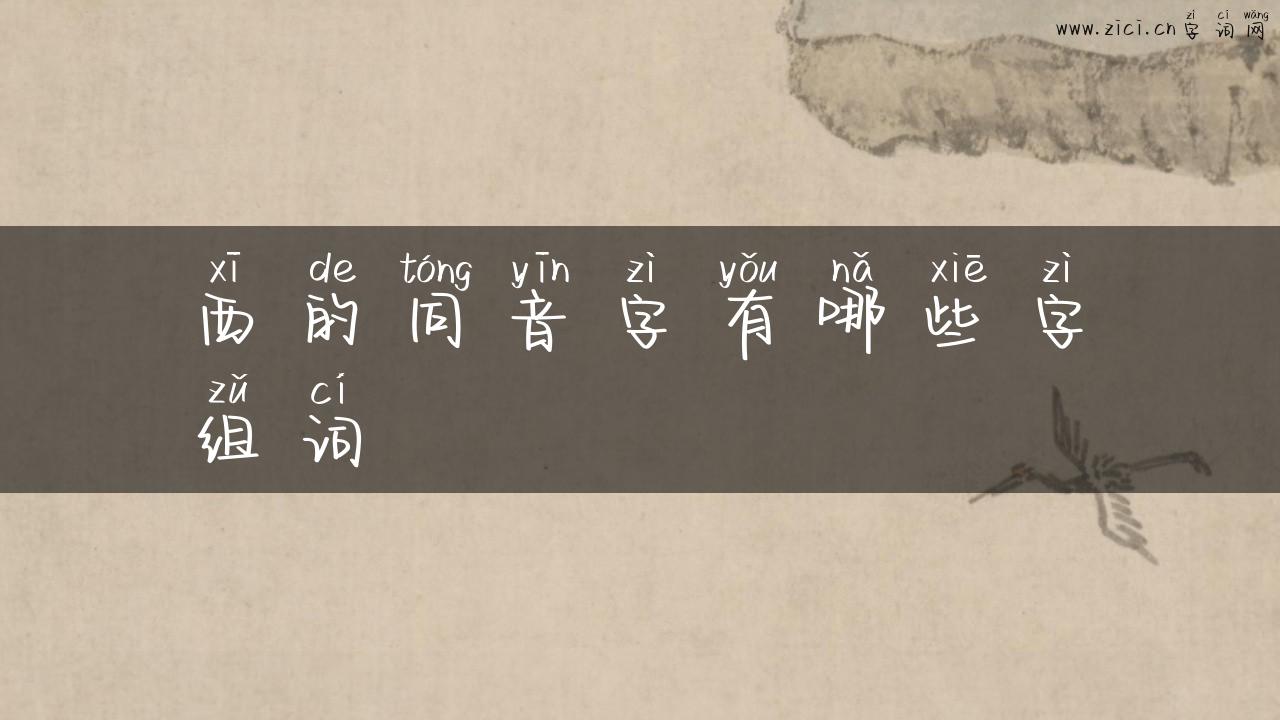 zì cí wǎng
www.zici.cn 字词网
xī de tóng yīn zì yǒu nǎ xiē zì
西的同音字有哪些字
zǔ cí
组词